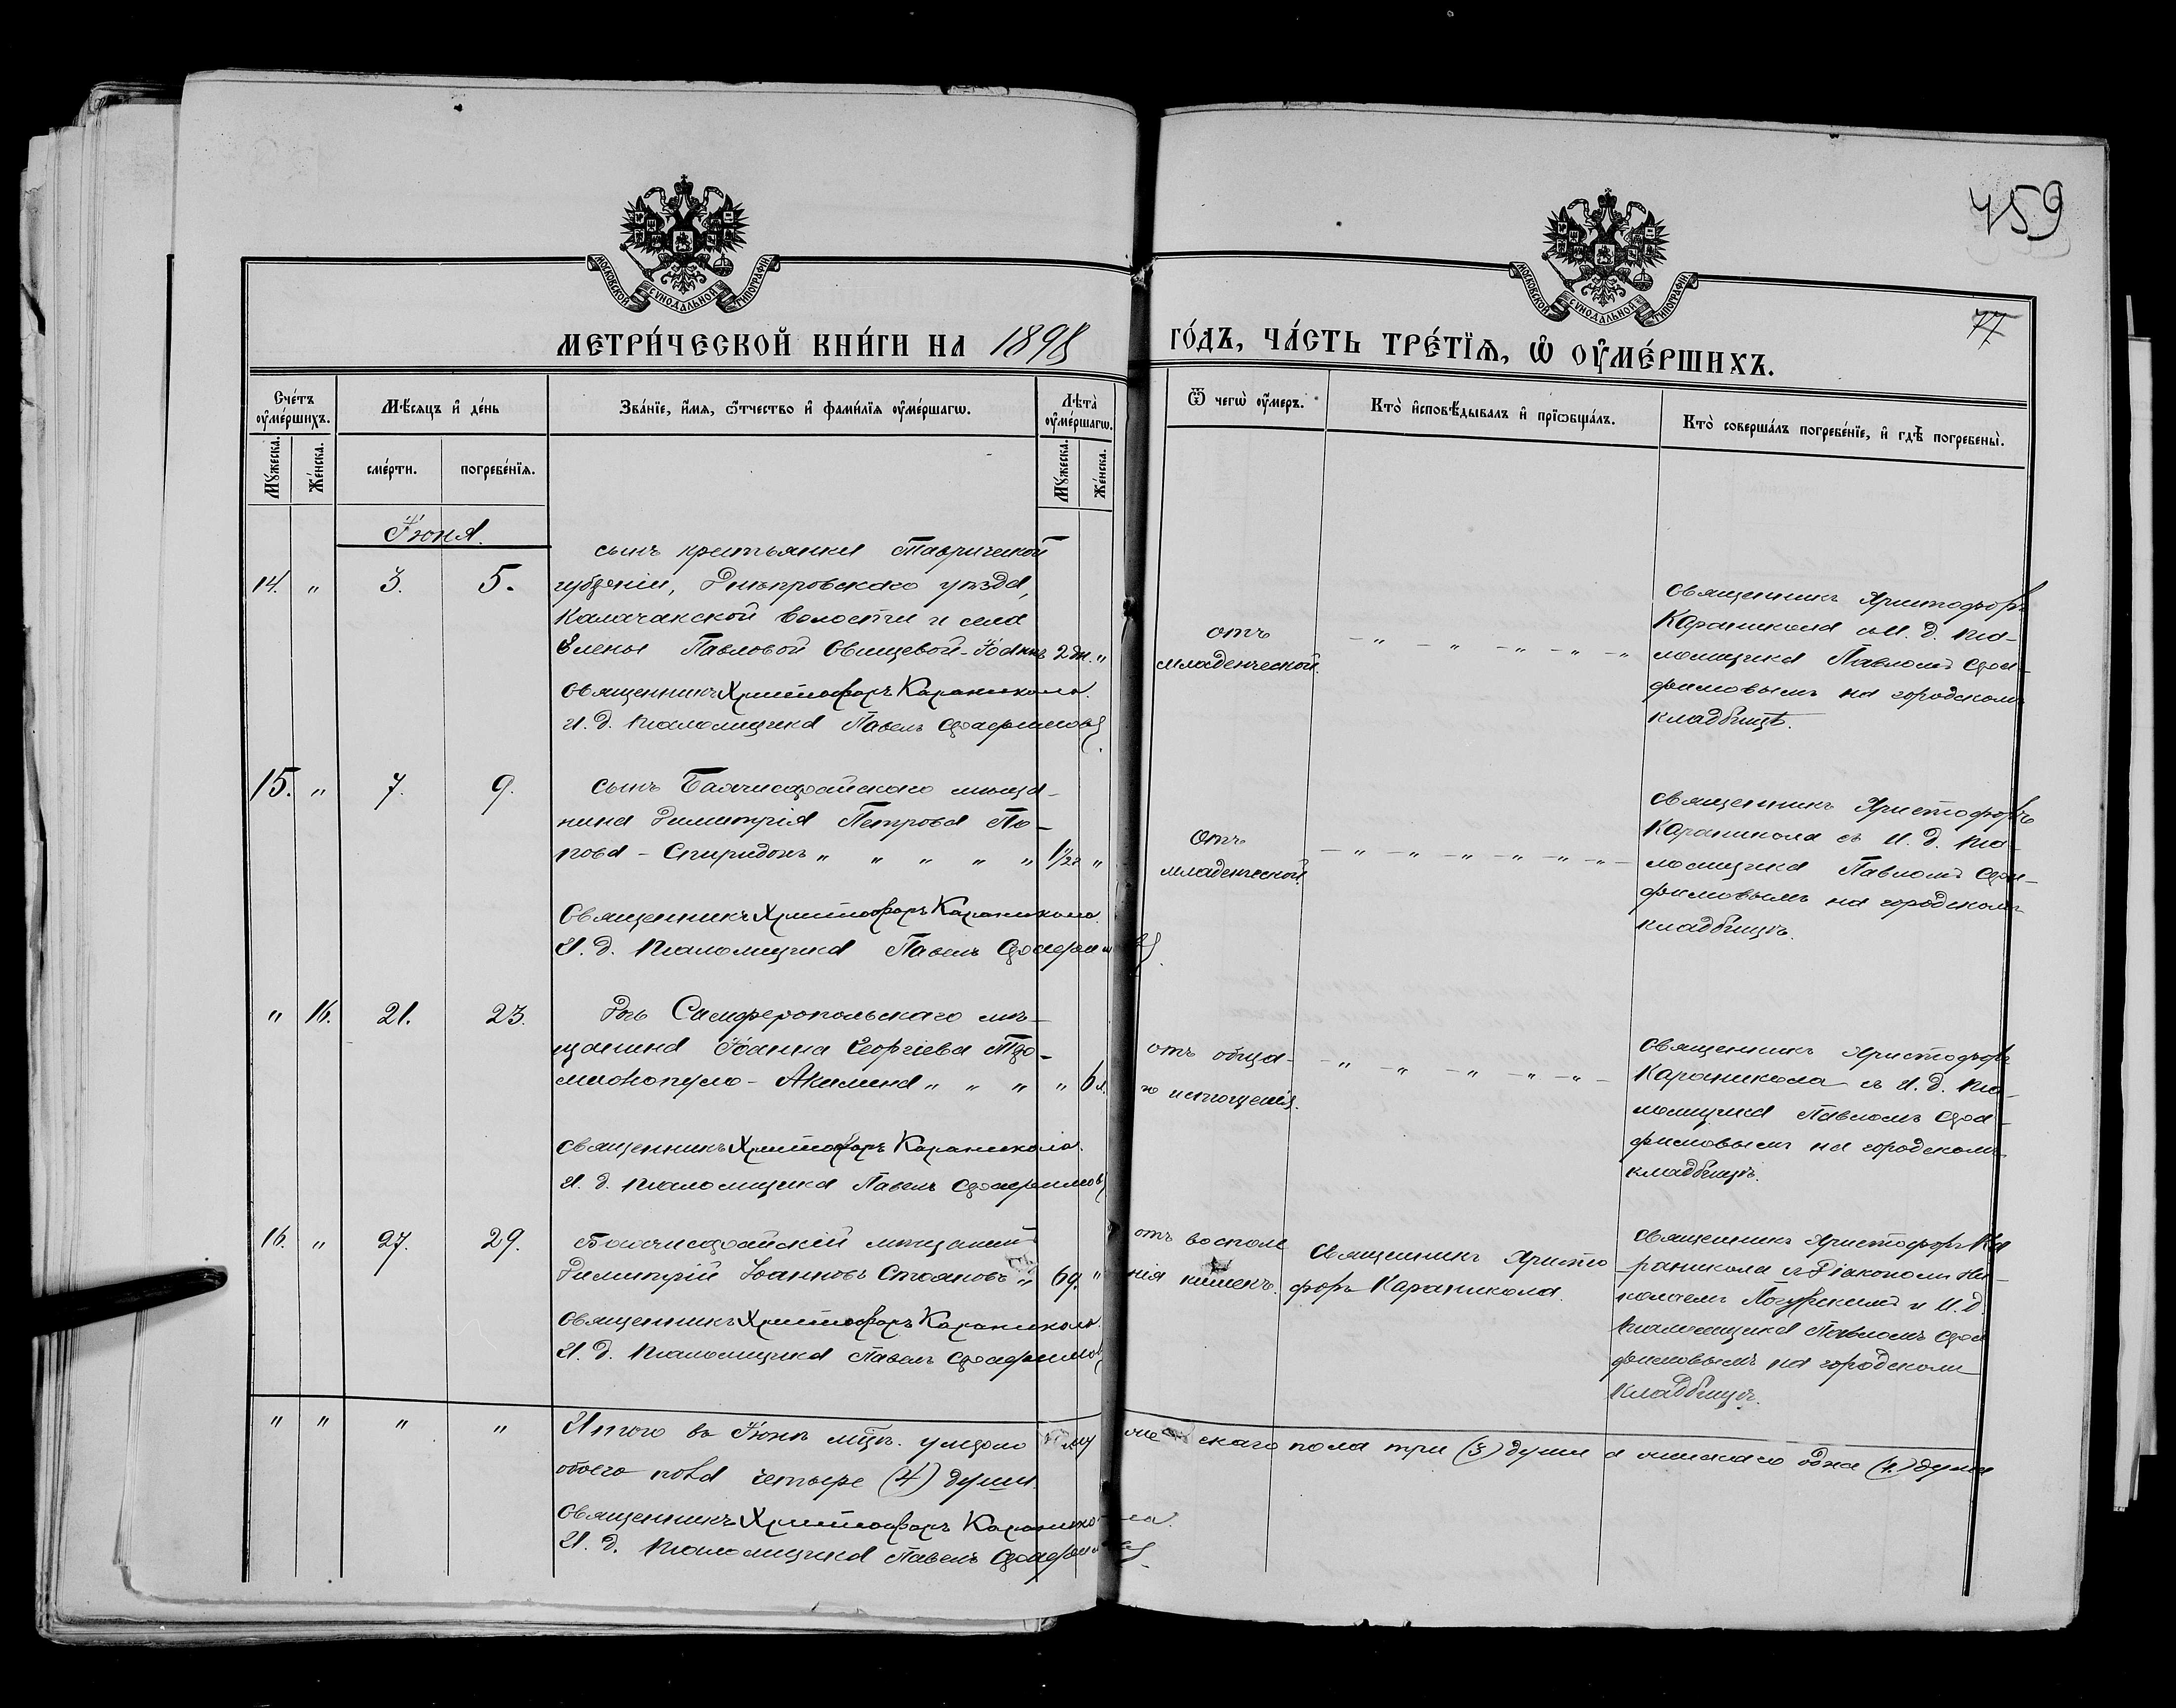 459
77
МОСКОВСКОЙ СУНОДАЛЬНОЙ ТИПОГРАФІИ
МОСКОВСКОЙ СУНОДАЛЬНОЙ ТИПОГРАФІИ
МЕТРИ́ЧЕСКОЙ КНИ́ГИ НА 1898 ГО́ДЪ, ЧА́СТЬ ТРЕ́ТЇѦ, Ѡ҆ ОУ҆МЕ́РШИХЪ.
Сче́тъ оу҆ме́ршихъ.
Мꙋ́жеска.
Же́нска.
Мѣ́сяцъ и҆ де́нь
сме́рти.
погребе́нїѧ.
Зва́нїе, и҆́мѧ, ѻ҆́тчество и҆ фами́лїѧ оу҆ме́ршагѡ.
Лѣта̀ оу҆ме́ршагѡ.
Мꙋ́жеска.
Же́нска.
Ѿ чегѡ̀ оу҆́меръ.
Кто̀ и҆сповѣ́дывалъ и҆ прїѡбща́лъ.
Кто̀ соверша́лъ погребе́нїе, и҆ гдѣ̀ погребены̀.
Іюня.
14. " 3. 5.
сынъ крестьянки Таврической
губерніи, Днѣпровскаго уѣзда,
Каланчакской волости и села
Елены Павловой Овищевой-Іоаннъ 2 дн. "
Священникъ Христофоръ Караникола.
И. д. псаломщика Павелъ Серафимовъ.
отъ
младенческой.
– " – " – " – " – "
Священникъ Христофоръ
Караникола съ И. д. пса-
ломщика Павломъ Сера-
фимовымъ на городскомъ
кладбищѣ.
15. " 7. 9.
сынъ Бахчисарайскаго мѣща-
нина Димитрія Петрова По-
пова - Спиридонъ " " " " " 1/20 "
Священникъ Христофоръ Караникола.
И. д. псаломщика Павелъ Серафимовъ.
Отъ
младенческой.
– " – " – " – " – " – " –
Священникъ Христофоръ
Караникола съ И. д. пса-
ломщика Павломъ Сера-
фимовымъ на городскомъ
кладбищѣ.
" 16. 21. 23.
Дочь Симферопольскаго мѣ-
щанина Іоанна Георгіева
- Акилина " " " " 6 л.
Священникъ Христофоръ Караникола.
И. д. псаломщика Павелъ Серафимовъ
отъ обща-
го истощенія.
– " – " – " – " – " –
Священникъ Христофоръ
Караникола съ И. д. пса-
ломщика Павломъ Сера-
фимовымъ на городскомъ
кладбищѣ.
16. " 27. 29.
Бахчисарайскій мѣщанинъ
Димитрій Іоанновъ Стояновъ " 69. "
Священникъ Христофоръ Караникола.
И. д. псаломщика Павелъ Серафимовъ
отъ воспале
нія кишекъ.
Священникъ Христо
форъ Караникола.
Священникъ Христофоръ Ка
раникола съ Діакономъ Ни-
колаемъ и И. д.
псаломщика Павломъ Сера
фимовымъ на городскомъ
кладбищѣ.
" " " "
Итого въ Іюнѣ мцѣ. умерло мужескаго пола три (3) души а женскаго одна (1.) душа
обоего пола четыре (4) души.
Священникъ Христофоръ Караникола.
И. д. псаломщика Павелъ Серафимовъ.